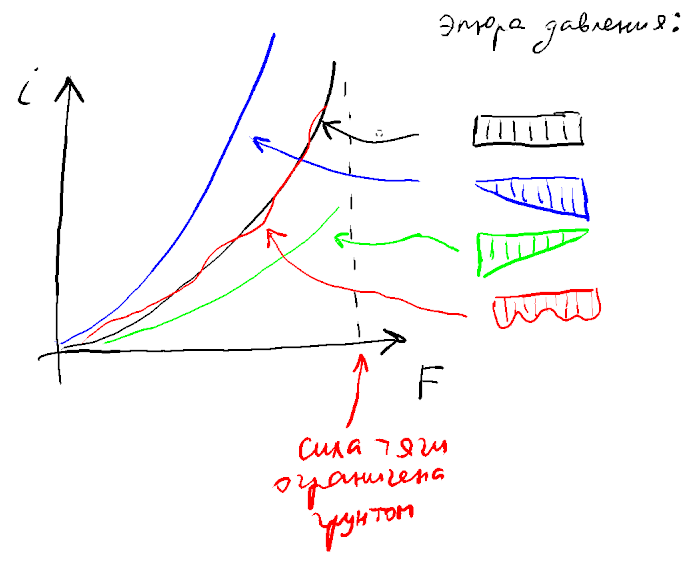 Эпюра давления:
i
F
сила тяги
ограничена
грунтом